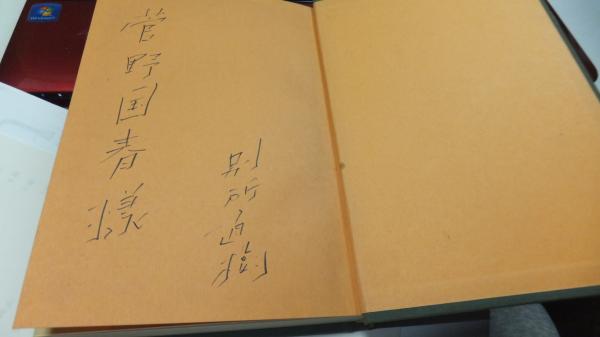 菅野国春様
別所直樹
Windows